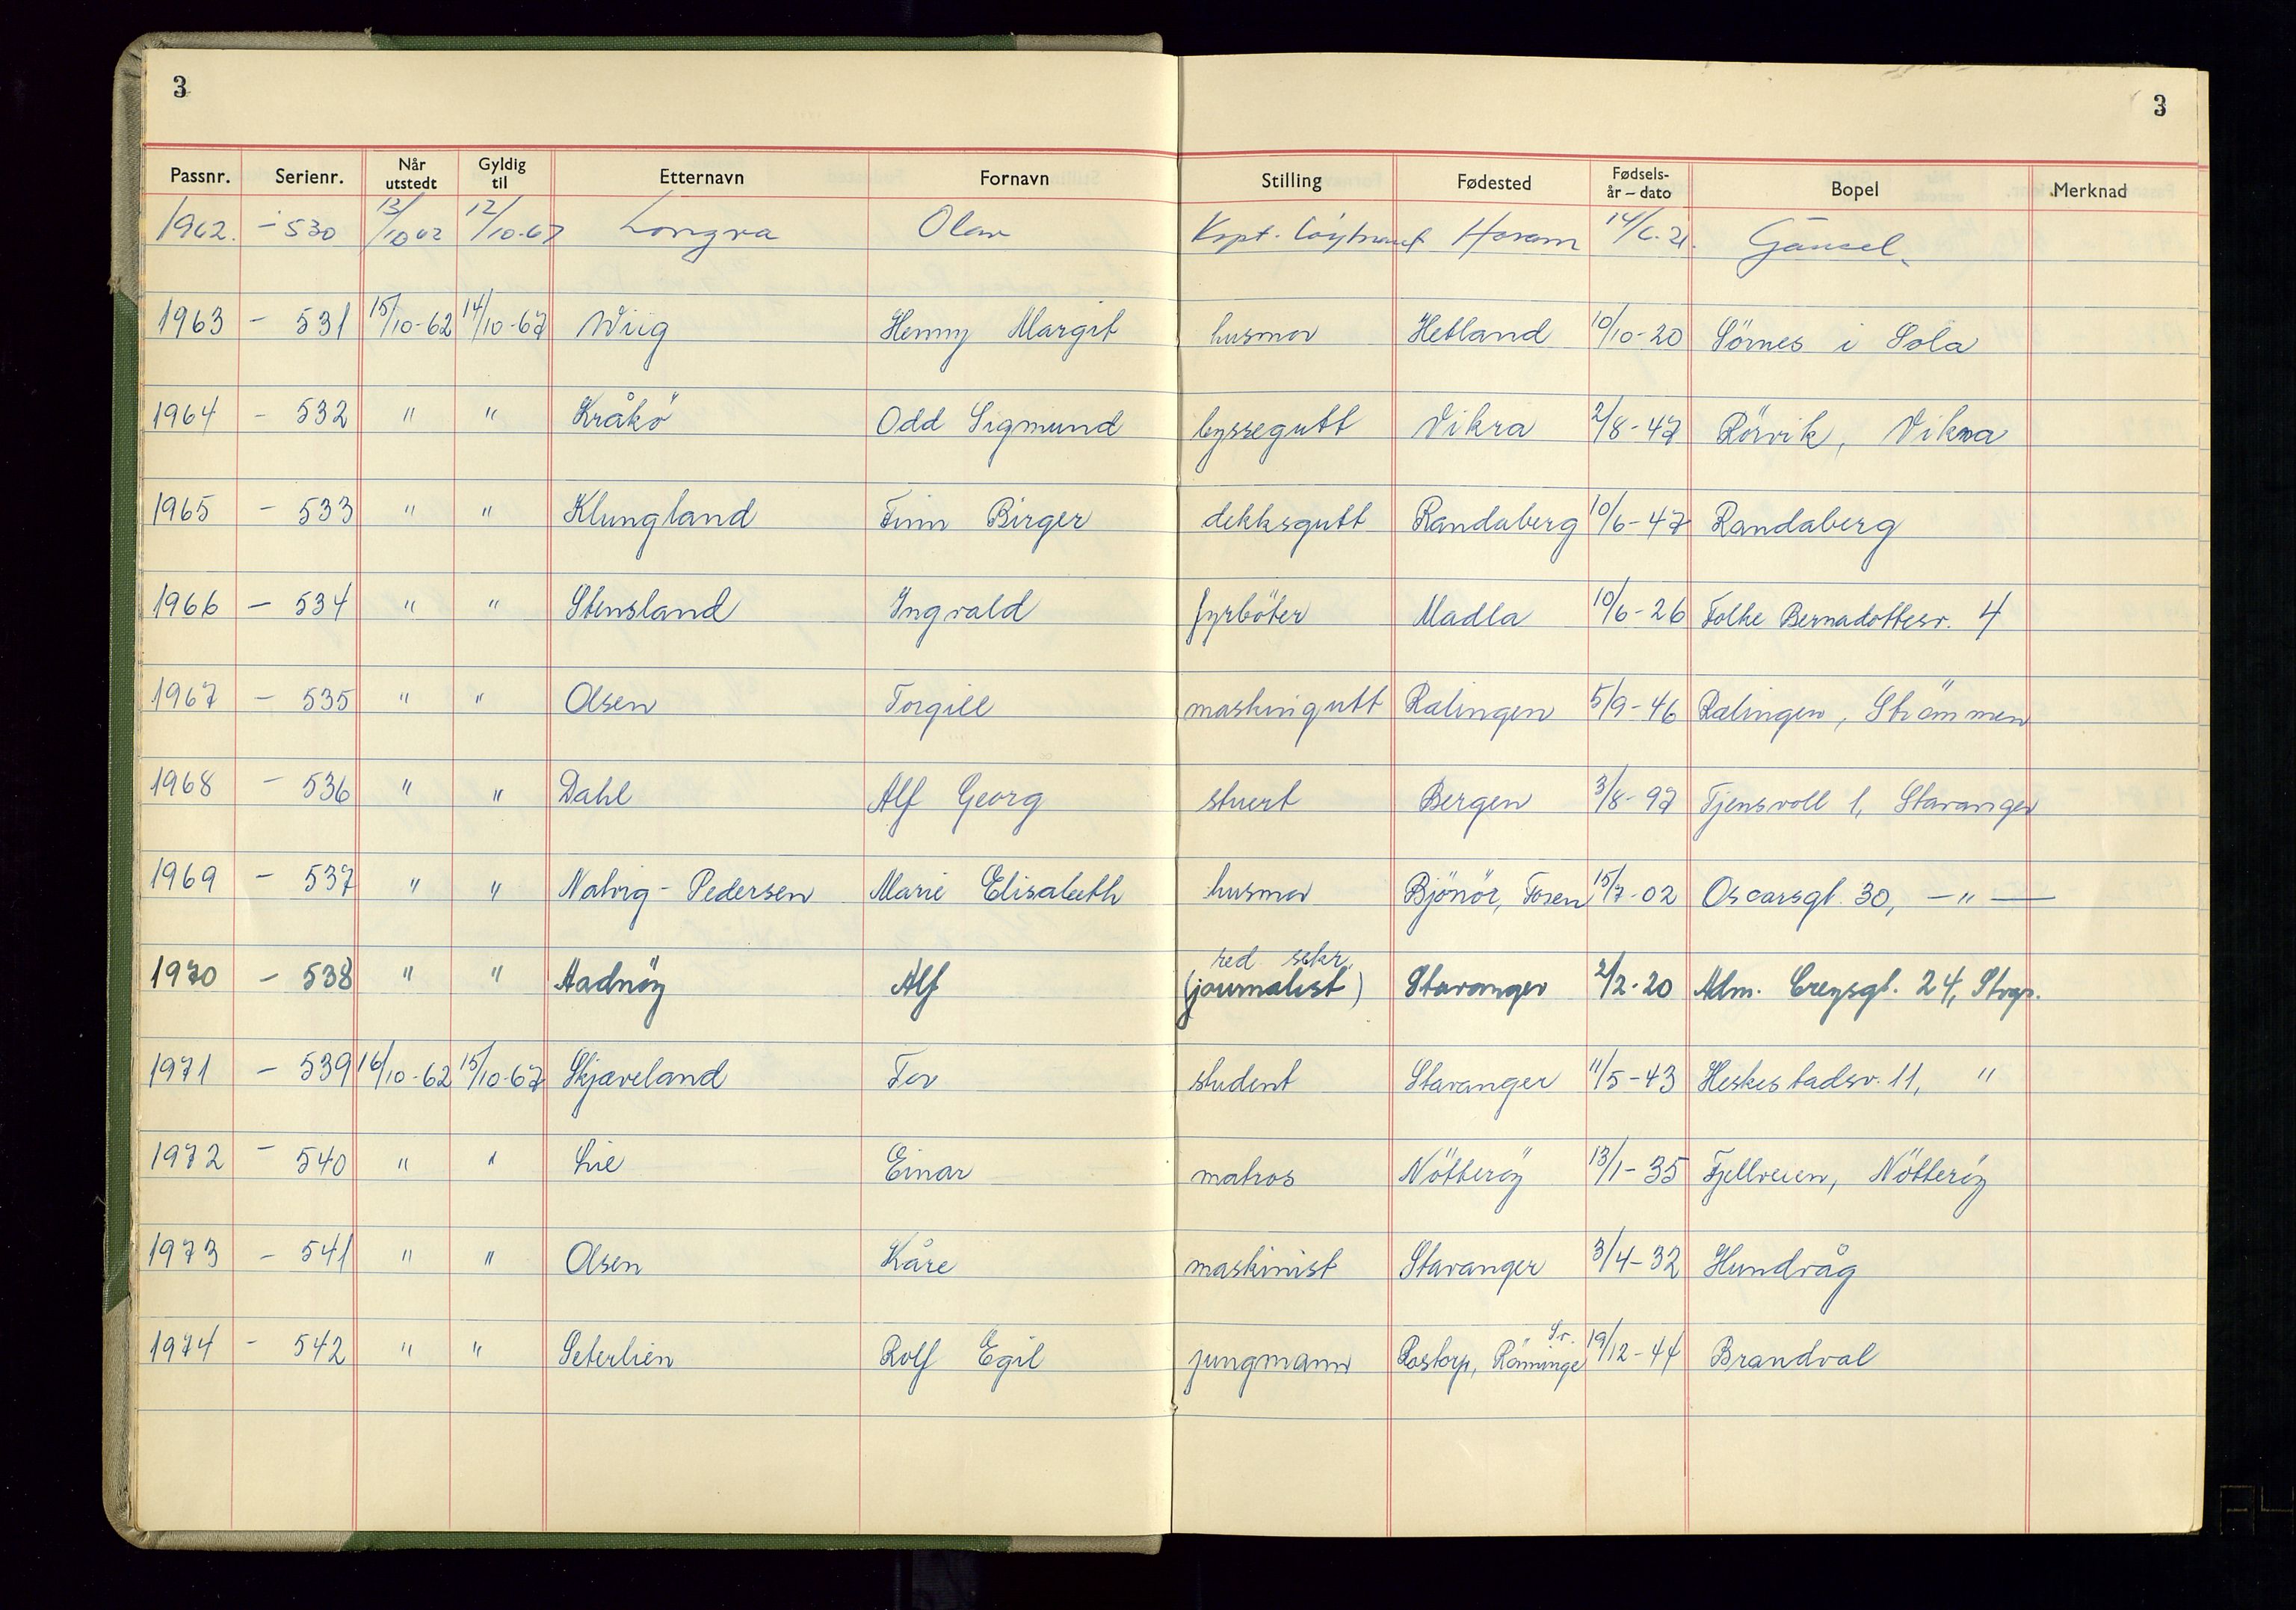 3 3
Passnr. Serienr. Når utstedt Gyldig til Etternavn Fornavn Stilling Fødested Fødsels- år – dato Bopel Merknad
1962. - 530 13/10 62 12/10-67 Longva Olav Kapt. löytnant Haram 14/6-21. Gausel.
1963 - 531 15/10-62 14/10-67 Wiig Henny Margit husmor Hetland 10/10-20 Sörnes i Sola
1964 - 532 " " Kråkö Odd Sigmund byssegutt Vikra 2/8-47 Rörvik, Vikna
1965 - 533 " " Klungland Finn Birger dekksgutt Randaberg 10/6-47 Randaberg
1966 - 534 " " Stensland Ingvald fyrböter Madla 10/6-26 Folke Bernadottesv. 4
1967 - 535 " " Olsen Torgill maskingutt Ralingen 5/9-46 Ralingen, Strömmen
1968 - 536 " " Dahl Alf Georg stuert Bergen 3/8-97 Tjensvoll 1, Stavanger
1969 - 537 " " Natvig-Pedersen Marie Elisabeth husmor Bjönör, Fosen 15/7-02 Oscarsgt. 30, - " -
1970 - 538 " " Aadnöy Alf red. sekr. (journalist) Stavanger 2/2-20 Adm. Creysgt. 24, Stvgr.
1971 - 539 16/10-62 15/10-67 Skjæveland Tor student Stavanger 11/5-43 Heskestadsv. 11, "
1972 - 540 " " Lie Einar matros Nötteröy 13/1-35 Fjellveien, Nötteröy
1973 - 541 " " Olsen Kåre maskinist Stavanger 3/4-32 Hundvåg
1974 - 542 " " Seterlien Rolf Egil jungmann Rostorp, Rönninge Sv. 19/12-44 Brandval